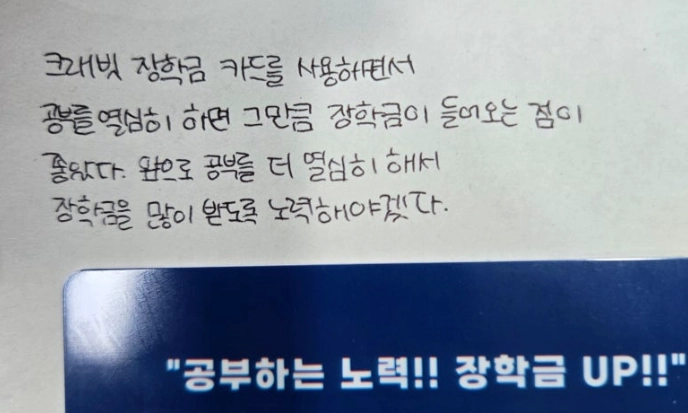 크래빗 장학금 카드를 사용하면서
공부를 열심히 하면 그만큼 장학금이 들어오는 점이
좋았다. 앞으로 공부를 더 열심히 해서
장학금을 많이 받도록 노력해야겠다.
"공부하는 노력!! 장학금 UP!!"